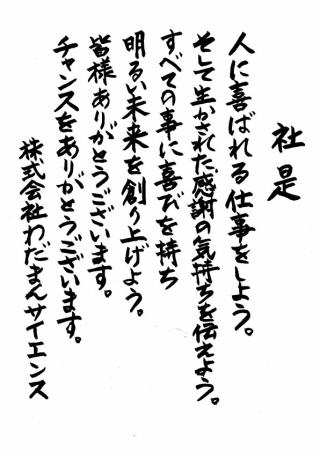 社是
人に喜ばれる仕事をしよう。
そして生かされた感謝の気持ちを伝えよう。
すべての事に喜びを持ち
明るい未来を創り上げよう。
皆様ありがとうございます。
チャンスをありがとうございます。
株式会社わだまんサイエンス